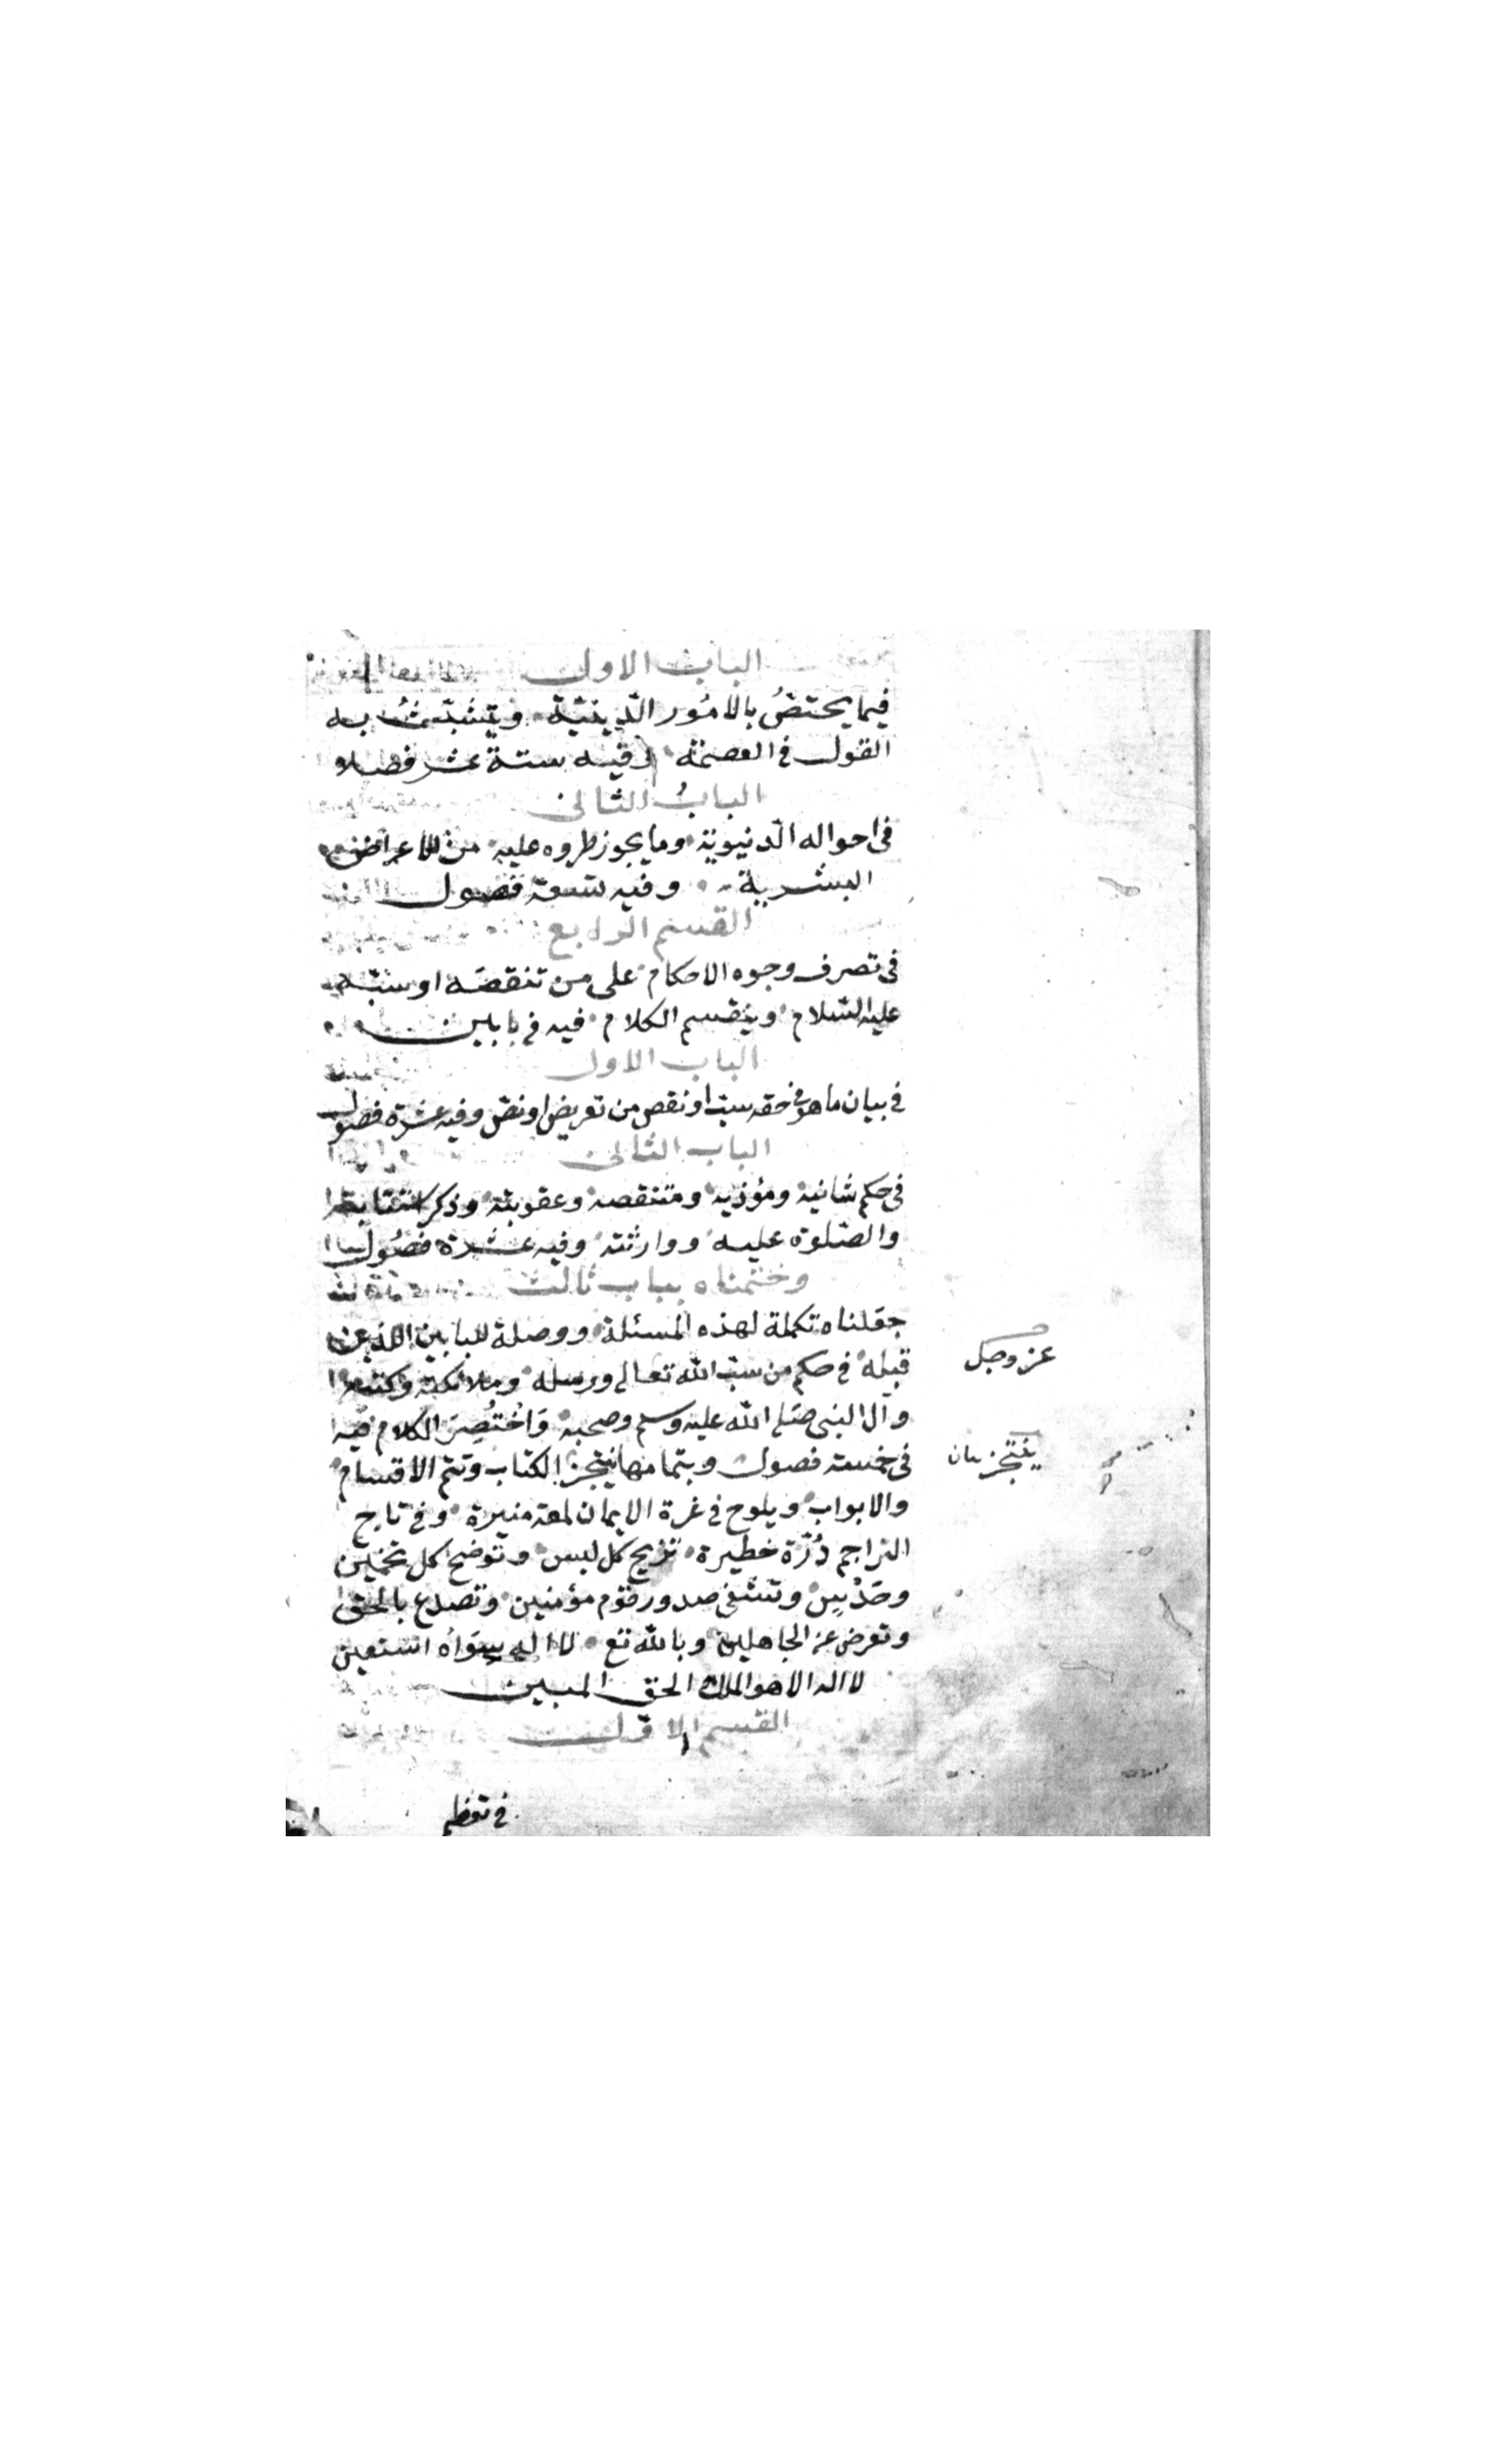 الباب الاول
فيما يختصُ بالامُور الدّينيّة ويتشبّثُ به
القول في العصمة وفيه ستة عشر فصلا
البابُ الثاني
في احواله الدّنيوية وما يجوز طروه عليه من الاعراض
البشرية وفيه تسعة فصول
القسم الرابع
في تصرف وجوه الاحكام على من تنقصَه او سَبّه
عليه السّلام وينقسم الكلام فيه في بابين
الباب الاول
في بيان ما هو في حقه سبّ او نقص من تعريض او نصّ وفيه عشرة فصول
الباب الثاني
في حكم شانيه ومؤذيه ومتنقصه وعقوبته وذكر استتابته
والصّلوة عليه ووارثته وفيه عشرة فصُول
وختمناه بباب ثالث
جعلناه تكملة لهذه المسئلة ووصلة للبابين اللذين
قبله في حكم من سبّ الله تعالى ورسله وملائكته وكتبه
عز وجل
وآل النبي صلى الله عليه وسلم وصحبه وَاُختُصِرَ الكلام فيه
في خمسة فصول وبتمامها ينتجز الكتاب وتتم الاقسام
ينتجز
والابواب ويلوح في غرة الايمان لمعة منيرة وفي تاج
التراجم دُرّة خطيرة تزيح كل لبس وتوضح كل تخمين
وحَدْسٍ وتشفى صدور قوم مؤمنين وتصدع بالحق
وتعرض عن الجاهلين وبالله تع لا اله سِوَاه استعين
لا اله الا هو الملك الحق المبين
القسم الاول
في تعظيم